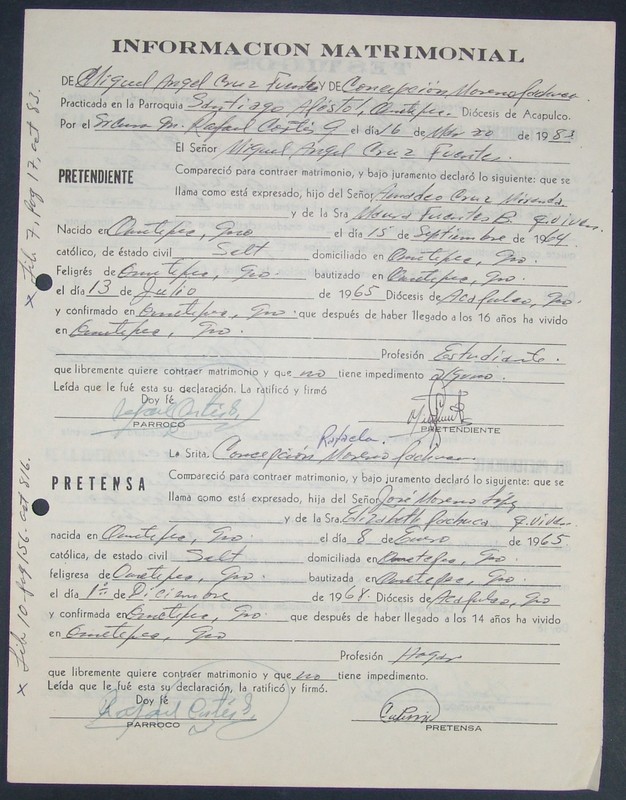 INFORMACION MATRIMONIAL
DE Miguel Angel Cruz Fuentes Y DE Concepción Moreno Pachuca
Practicada en la Parroquia Santiago Apóstol, Ometepec. Diócesis de Acapulco.
Por el Sr Cura M. Rafael Cortés G el día 16 de Marzo de 1983
El Señor Miguel Angel Cruz Fuentes.
PRETENDIENTE
Compareció para contraer matrimonio, y bajo juramento declaró lo siguiente: que se
llama como está expresado, hijo del Señor Amadeo Cruz Miranda
y de la Sra Fuentes B. q. viven.
Nacido en Ometepec, Gro el día 15 de Septiembre de 1964
católico, de éstado civil Solt domiciliado en Ometepec, Gro.
Feligrés de Ometepec, Gro. bautizado en Ometepec, Gro.
el día 13 de Julio de 1965 Diócesis de Acapulco, Gro.
y confirmado en Ometepec, Gro. que después de haber llegado a los 16 años ha vivido
en Ometepec, Gro.
Profesión Estudiante.
que libremente quiere contraer matrimonio y que no tiene impedimento alguno.
Leída que le fué esta su declaración. La ratificó y firmó
Doy fé
Rafael Cortés G.
PARROCO
PRETENDIENTE
Rafaela.
La Srita. Concepción Moreno Pachuca.
PRETENSA
Compareció para contraer matrimonio, y bajo juramento declaró lo siguiente: que se
llama como está expresado, hija del Señor José Moreno López
y de la Sra. Elizabeth Pachuca q. viven.
nacida en Ometepec, Gro. el día 8 de Enero de 1965
católica, de estado civil Solt domiciliada en Ometepec, Gro.
feligresa de Ometepec, Gro. bautizada en Ometepec, Gro.
el día 1º de Diciembre de 1968 Diócesis de Acapulco, Gro
y confirmada en Ometepec, Gro que después de haber llegado a los 14 años ha vivido
en Ometepec, Gro
Profesión Hogar
que libremente quiere contraer matrimonio y que no tiene impedimento.
Leída que le fué esta su declaración, la ratificó y firmó.
Doy fé
Rafael Cortés G.
PARROCO
PRETENSA
x Lib. 7, Pag 17, act 83.
x Lib. 10 - pag 156 - act 816.